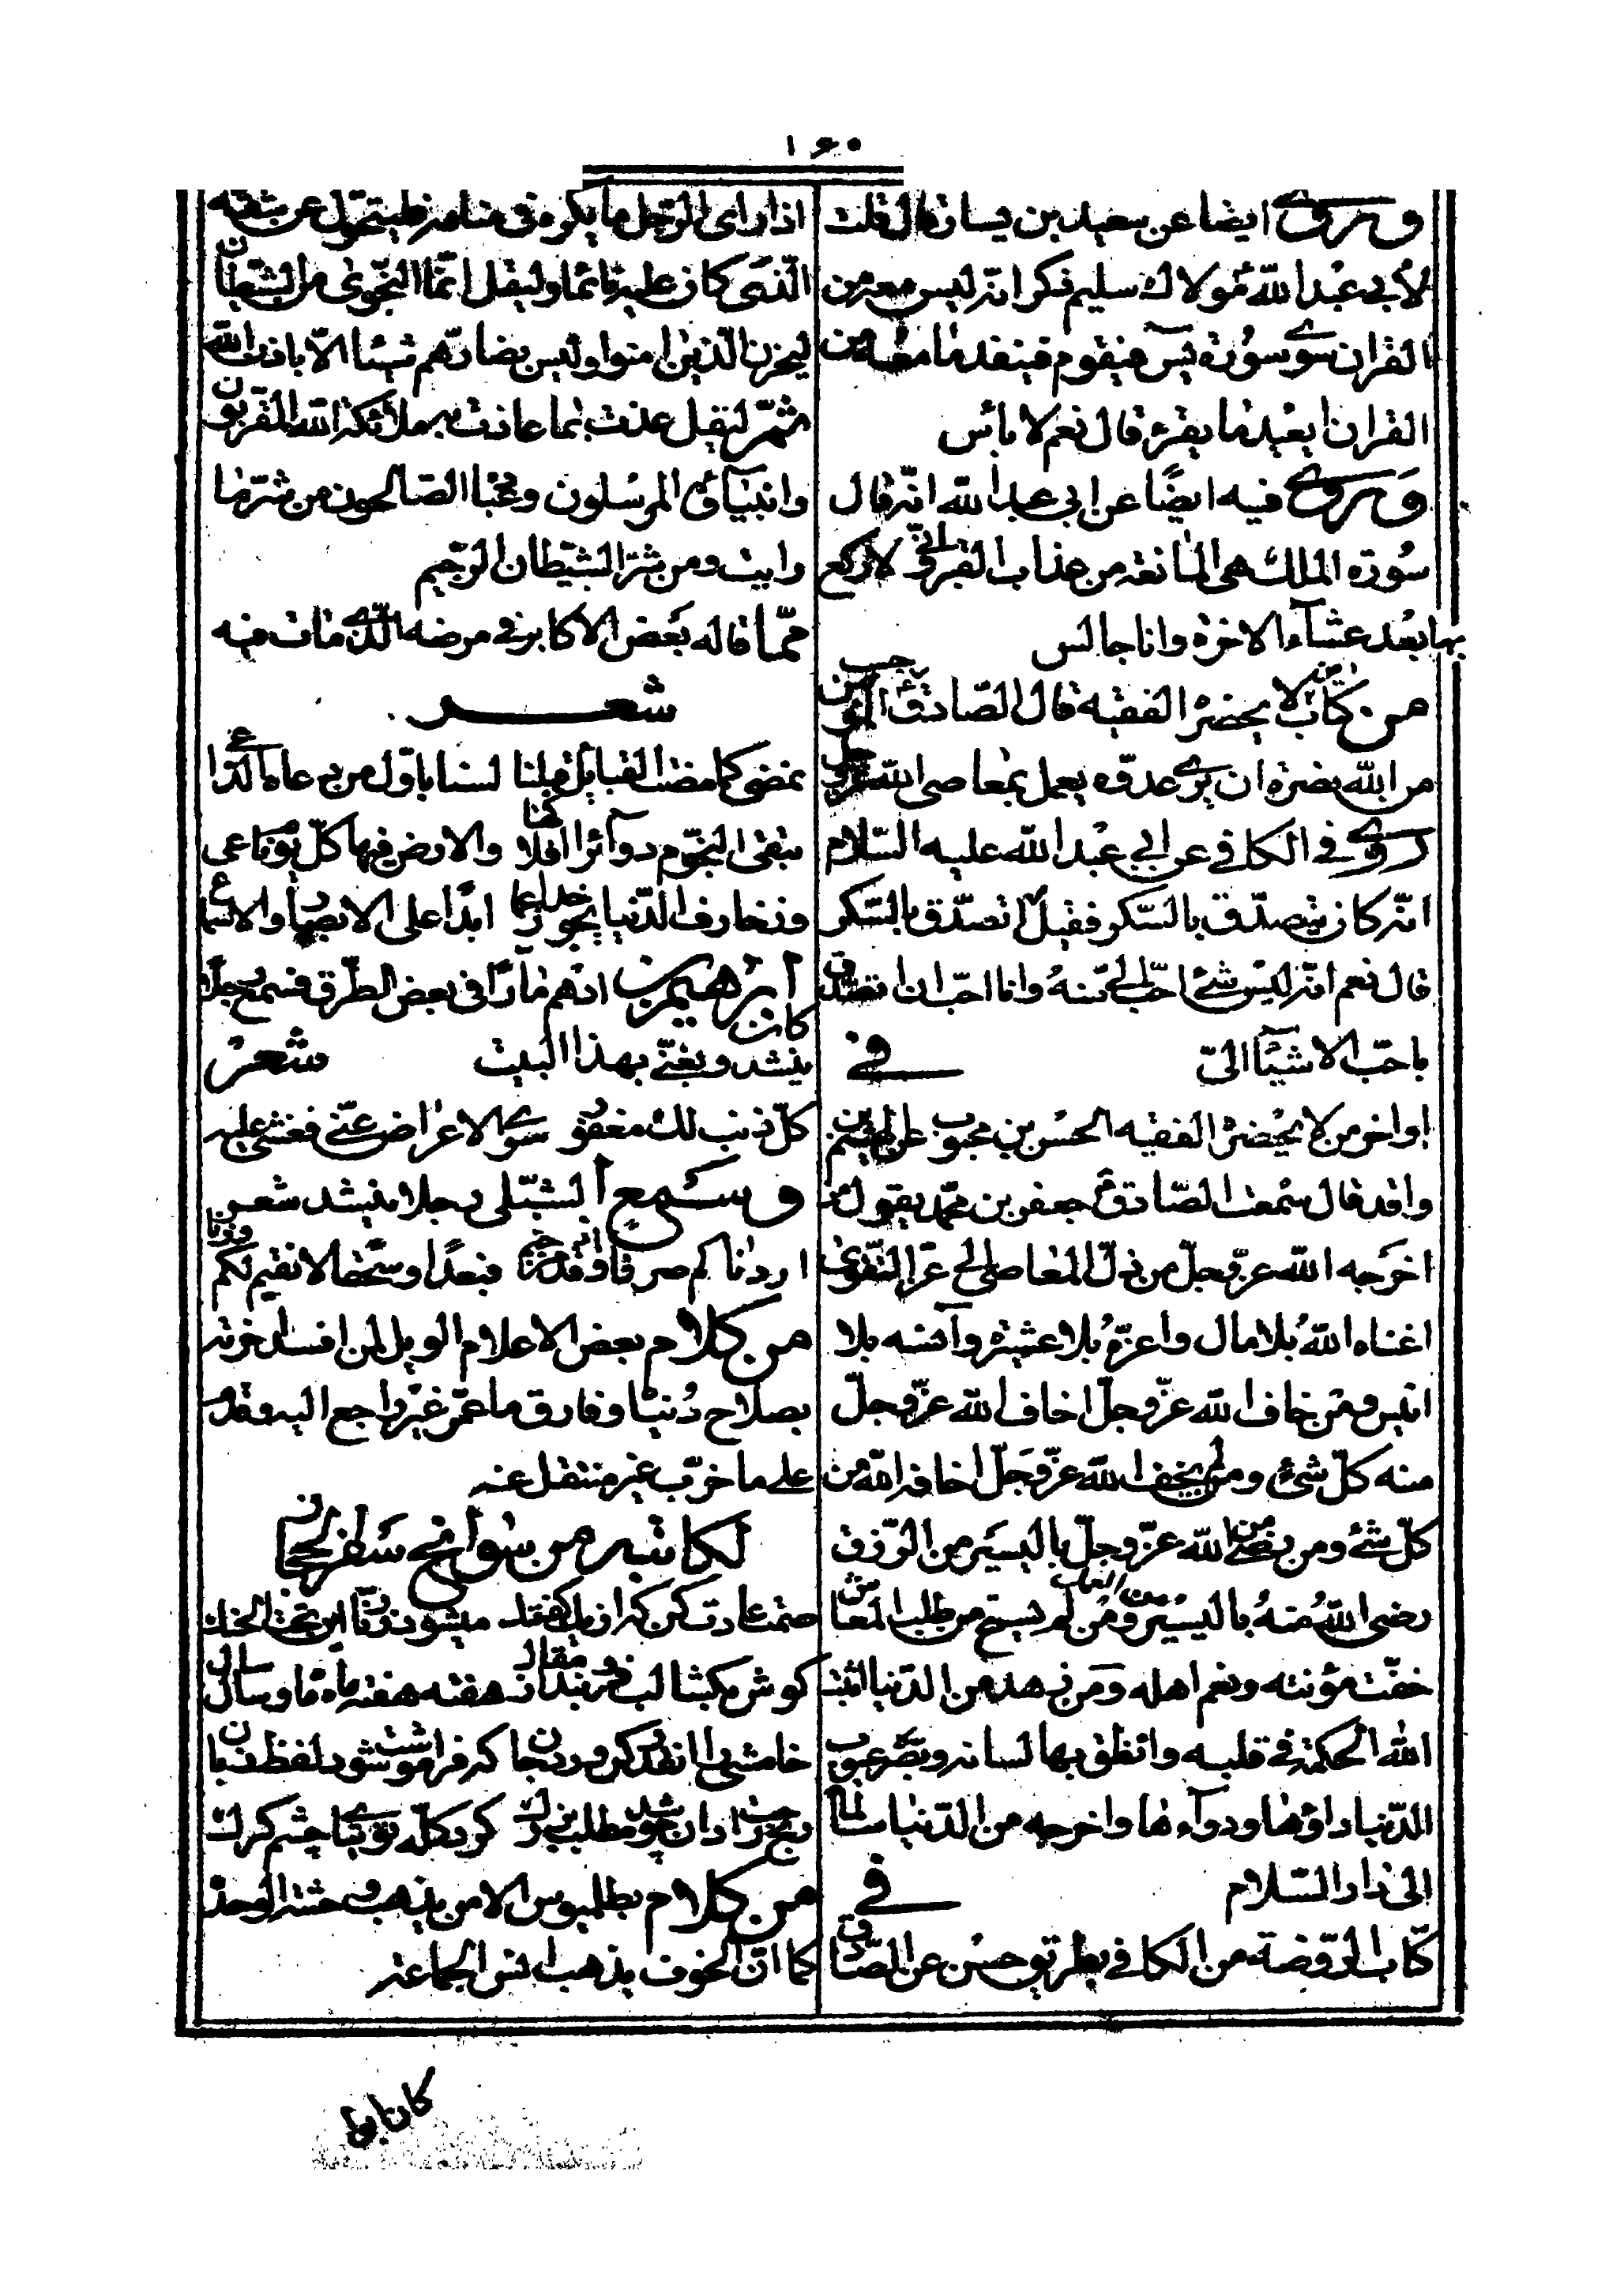 ١٦٠
وروى ايضا عن سعيد بن يسار قال قلت
لأبي عبد الله ع مولاك سليم ذكر انه ليس معه من
القران سوى سورة يس فيقوم فينفد ما معه من
القران ايعيد ما يقرء قال نعم لا بأس
وروى فيه ايضًا عن ابي عبد الله انه قال
سورة الملك هي المانعة من عذاب القبر واني لاركع
بها بعد عشاء الاخرة وانا جالس
من كتاب من لا يحضره الفقيه قال الصادق ع حسب المؤمن
من الله نصرة ان يرى عدوه يعمل بمعاصي الله عز وجل
روى في الكافي عن ابي عبد الله عليه السلام
انه كان يتصدق بالسكر فقيل اتتصدق بالسكر
قال نعم انه ليس شئ احب الي منه وانا احب ان اتصدق
باحب الاشياء الي في
اواخر من لا يحضره الفقيه الحسن بن محبوب عن الهيثم بن
واقد قال سمعت الصادق ع جعفر بن محمد يقول من
اخرجه الله عز وجل من ذل المعاصي الى عز التقوى
اغناه الله بلا مال واعزه بلا عشيرة وآنسه بلا
انيس ومن خاف الله عز وجل اخاف الله عز وجل
منه كل شئ ومن لم يخف الله عز وجل اخافه الله من
كل شئ ومن رضى من الله عز وجل باليسير من الرزق
رضى الله منه باليسير من العمل ومن لم يستح من طلب المعاش
خفت مؤنته ونعم اهله ومن زهد من الدنيا اثبت
الله الحكمة في قلبه وانطق بها لسانه وبصره عيوب
الدنيا داؤها ودواءها واخرجه من الدنيا سالما
الى دار السلام في
كتاب الروضة من الكافي بطريق حسن عن الصادق
اذا راى الرجل ما يكره في منامه فليتحول عن شقه
الذي كان عليه نائما وليقل انما النجوى من الشيطان
ليحزن الذين امنوا وليس بضارهم شيئا الا باذن الله
ثم ليقل عذت بما عاذت به ملائكة الله المقربون
وانبياؤه المرسلون وعباده الصالحون من شر ما
رايت ومن شر الشيطان الرجيم
مما قاله بعض الاكابر في مرضه الذي مات فيه
شعر
نمضي كما مضت القبايل قبلنا لسنا باول من دعاه الداعي
تبقى النجوم دوائرا افلاكها والارض فيها كل يوم ناعي
وزخارف الدنيا يجوز خداعها ابدًا على الابصار والاسماع
ابرهيم بن ادهم مارًا في بعض الطرق فسمع رجلا
كان
ينشد ويغني بهذا البيت شعر
كل ذنب لك مغفور سوى الاعراض عني فغشي عليه
وسمع الشبلي رجلا ينشد شعر
اردناكم صرفا وقد مزجتم فبعدًا وسحقا لا نقيم لكم وزنا
من كلام بعض الاعلام الويل لمن افسد اخرته
بصلاح دنياه وفارق ما عمر غير راجع اليه وقدم
على ما خرب غير منتقل عنه
لكاتبه من سوانح سفر الحجاز
صمت عادت كن كه از يك گفتنك ميشود زنار اين تحت الحنك
گوش بگشا لب فرو بند از مقال هفته هفته ماه ماه وسال سال
خامشي را انقدر كن ورد جان كه فراموشت شود لفظ زبان
من كلام بطلميوس الامن يذهب وحشة الوحدة
كما ان الخوف يذهب انس الجماعة
كان ابو